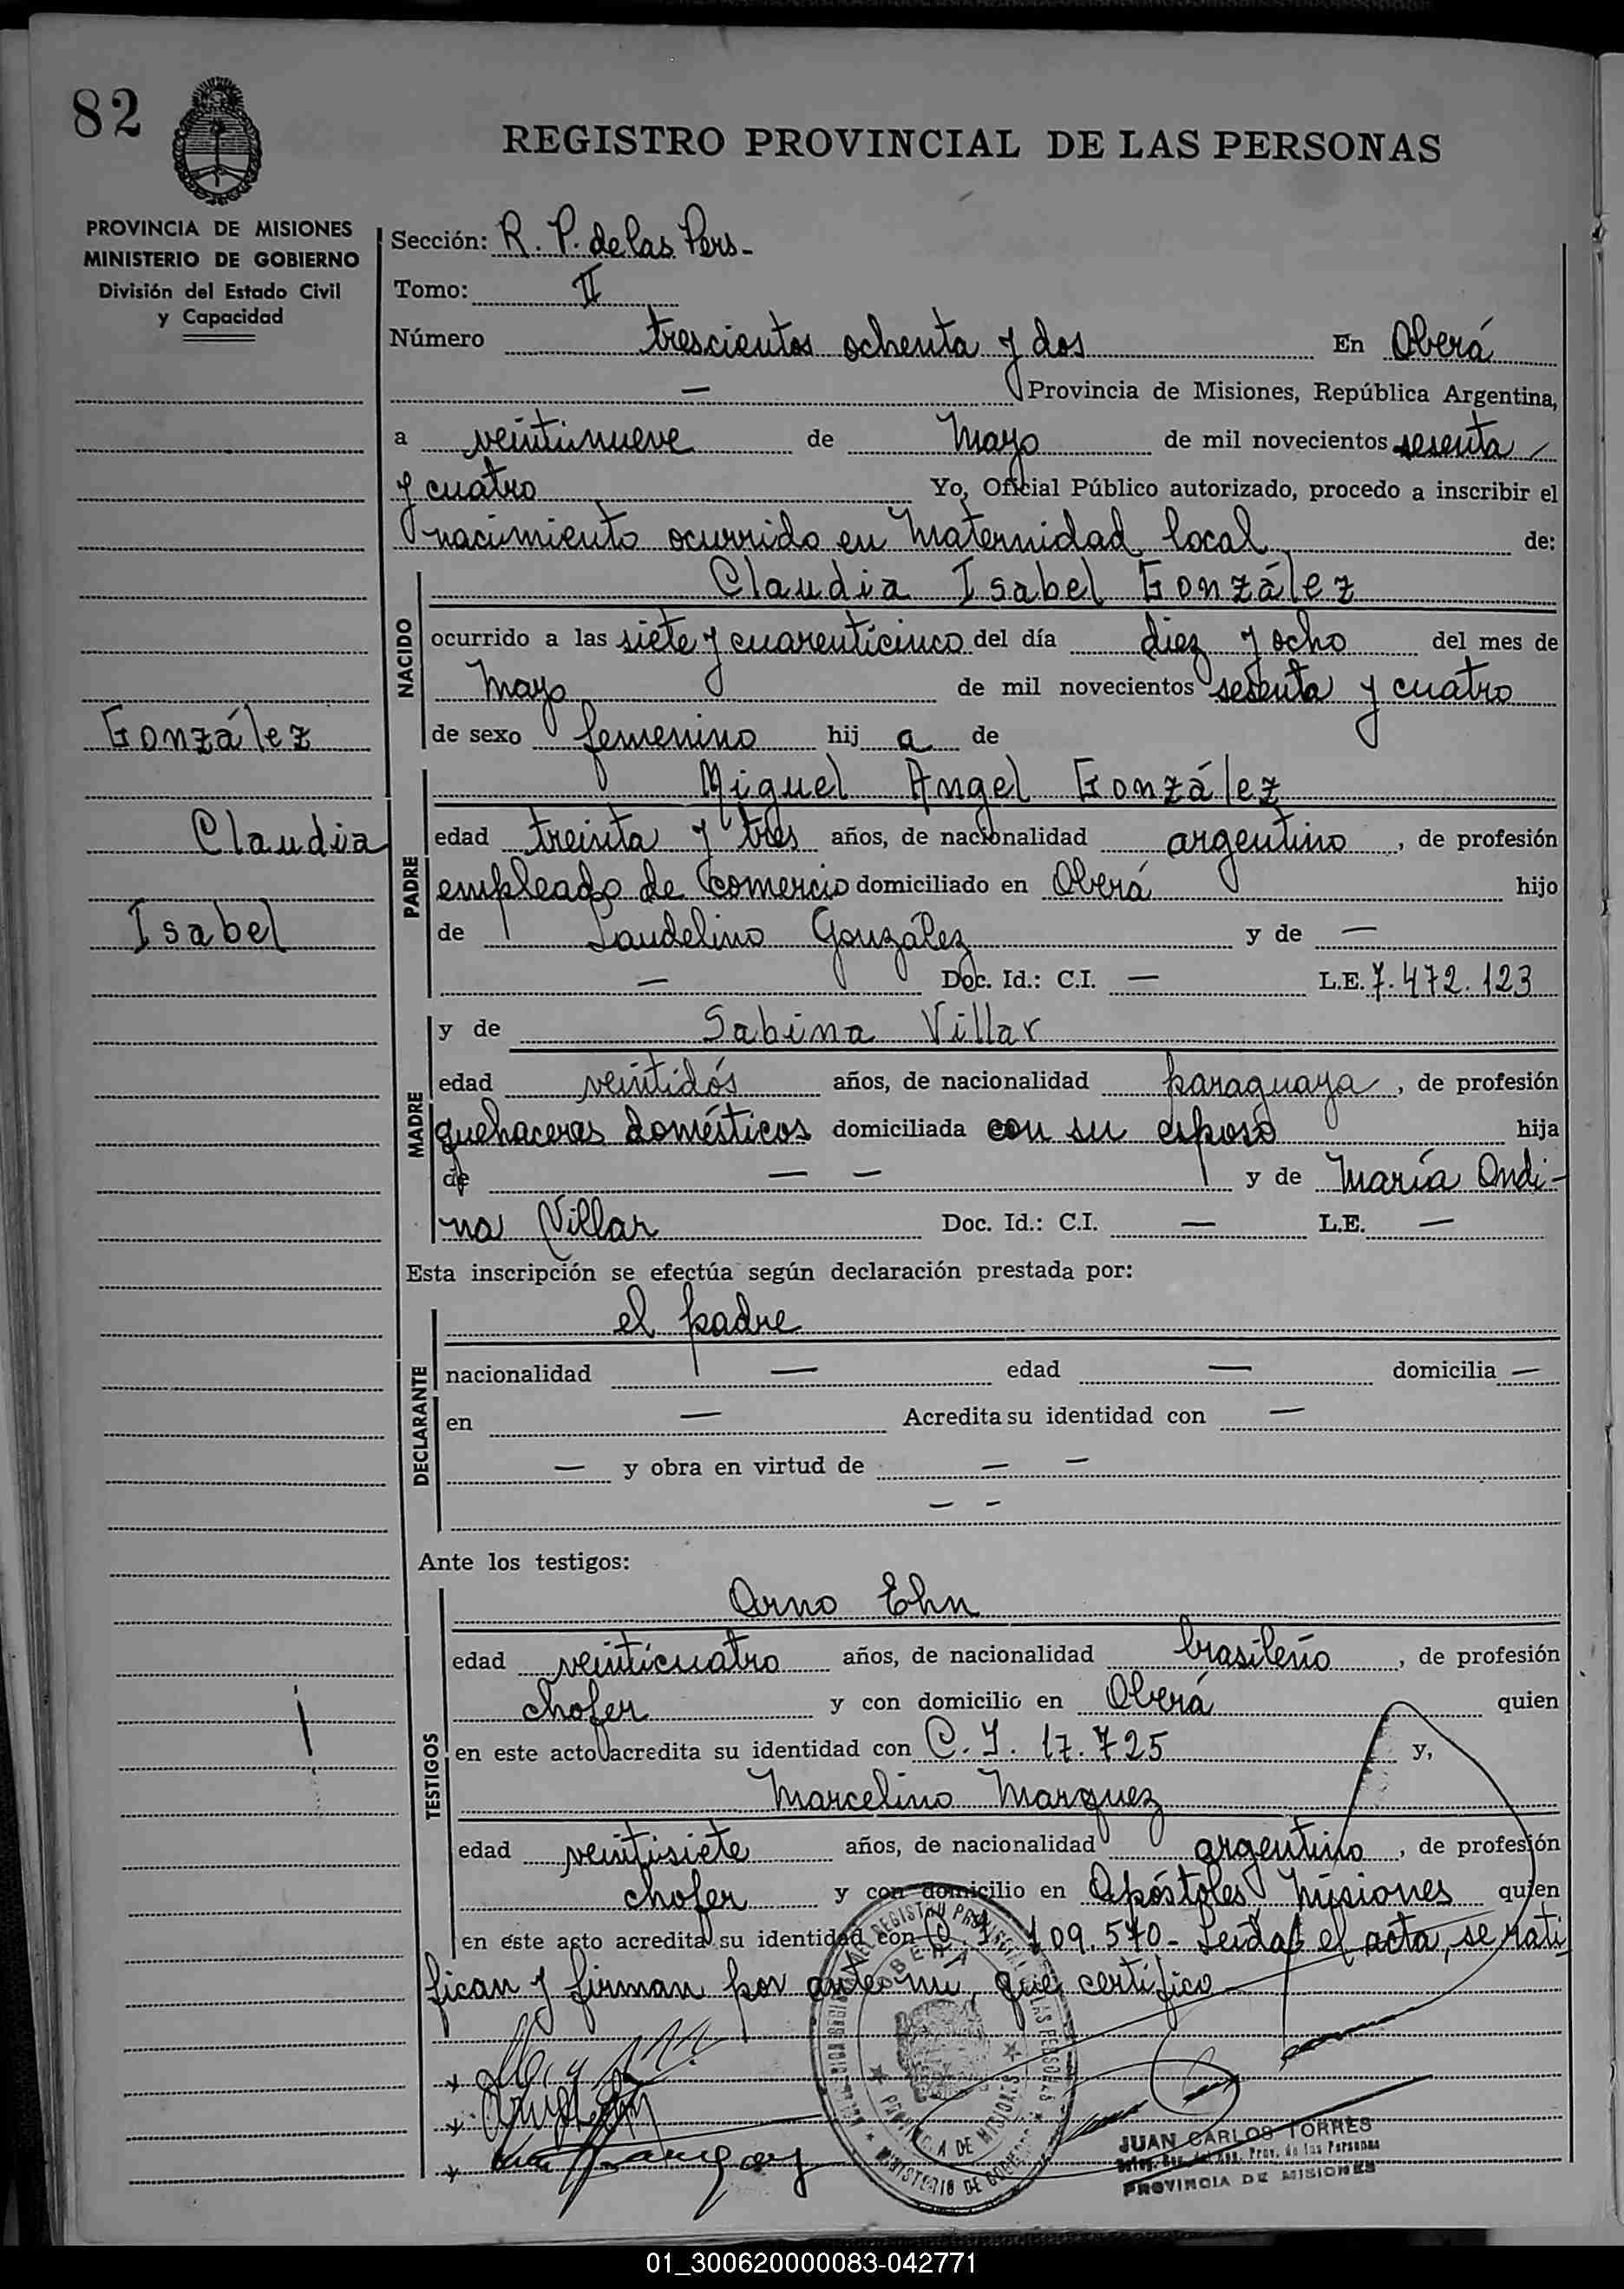 82
REGISTRO PROVINCIAL DE LAS PERSONAS
PROVINCIA DE MISIONES
MINISTERIO DE GOBIERNO
División del Estado Civil
y Capacidad
Sección: R. P. de las Pers-
Tomo: II
Número trescientos ochenta y dos En Oberá
— Provincia de Misiones, República Argentina,
a veintinueve de Mayo de mil novecientos sesenta
y cuatro Yo, Oficial Público autorizado, procedo a inscribir el
nacimiento ocurrido en Maternidad local de:
NACIDO
Claudia Isabel González
ocurrido a las siete y cuarenticinco del día diez y ocho del mes de
Mayo de mil novecientos sesenta y cuatro
de sexo femenino hij a de
González
Claudia
Isabel
PADRE
Miguel Angel González
edad treinta y tres años, de nacionalidad argentino, de profesión
empleado de comercio domiciliado en Oberá hijo
de Laudelino González y de —
— Doc. Id.: C.I. — L.E. 7.472.123
MADRE
y de Sabina Villar
edad veintidós años, de nacionalidad paraguaya, de profesión
quehaceres domésticos domiciliada con su esposo hija
de — — y de María Ondi-
na Villar Doc. Id.: C.I. — L.E. —
Esta inscripción se efectúa según declaración prestada por:
DECLARANTE
el padre
nacionalidad — edad — domicilia —
en — Acredita su identidad con —
— y obra en virtud de — —
— —
Ante los testigos:
TESTIGOS
Arno Ehn
edad veinticuatro años, de nacionalidad brasileño, de profesión
chofer y con domicilio en Oberá quien
en este acto acredita su identidad con C. I. 17.725 y,
Marcelino Marquez
edad veintisiete años, de nacionalidad argentino, de profesión
chofer y con domicilio en Apóstoles Misiones quien
en este acto acredita su identidad con C. I. 109.570- Leída el acta, se rati
fican y firman por ante mi, que certifico
OBERA
PROVINCIA DE MISIONES
MINISTERIO DE GOBIERNO
JUAN CARLOS TORRES
Prov. de las Personas
PROVINCIA DE MISIONES
01_300620000083-042771